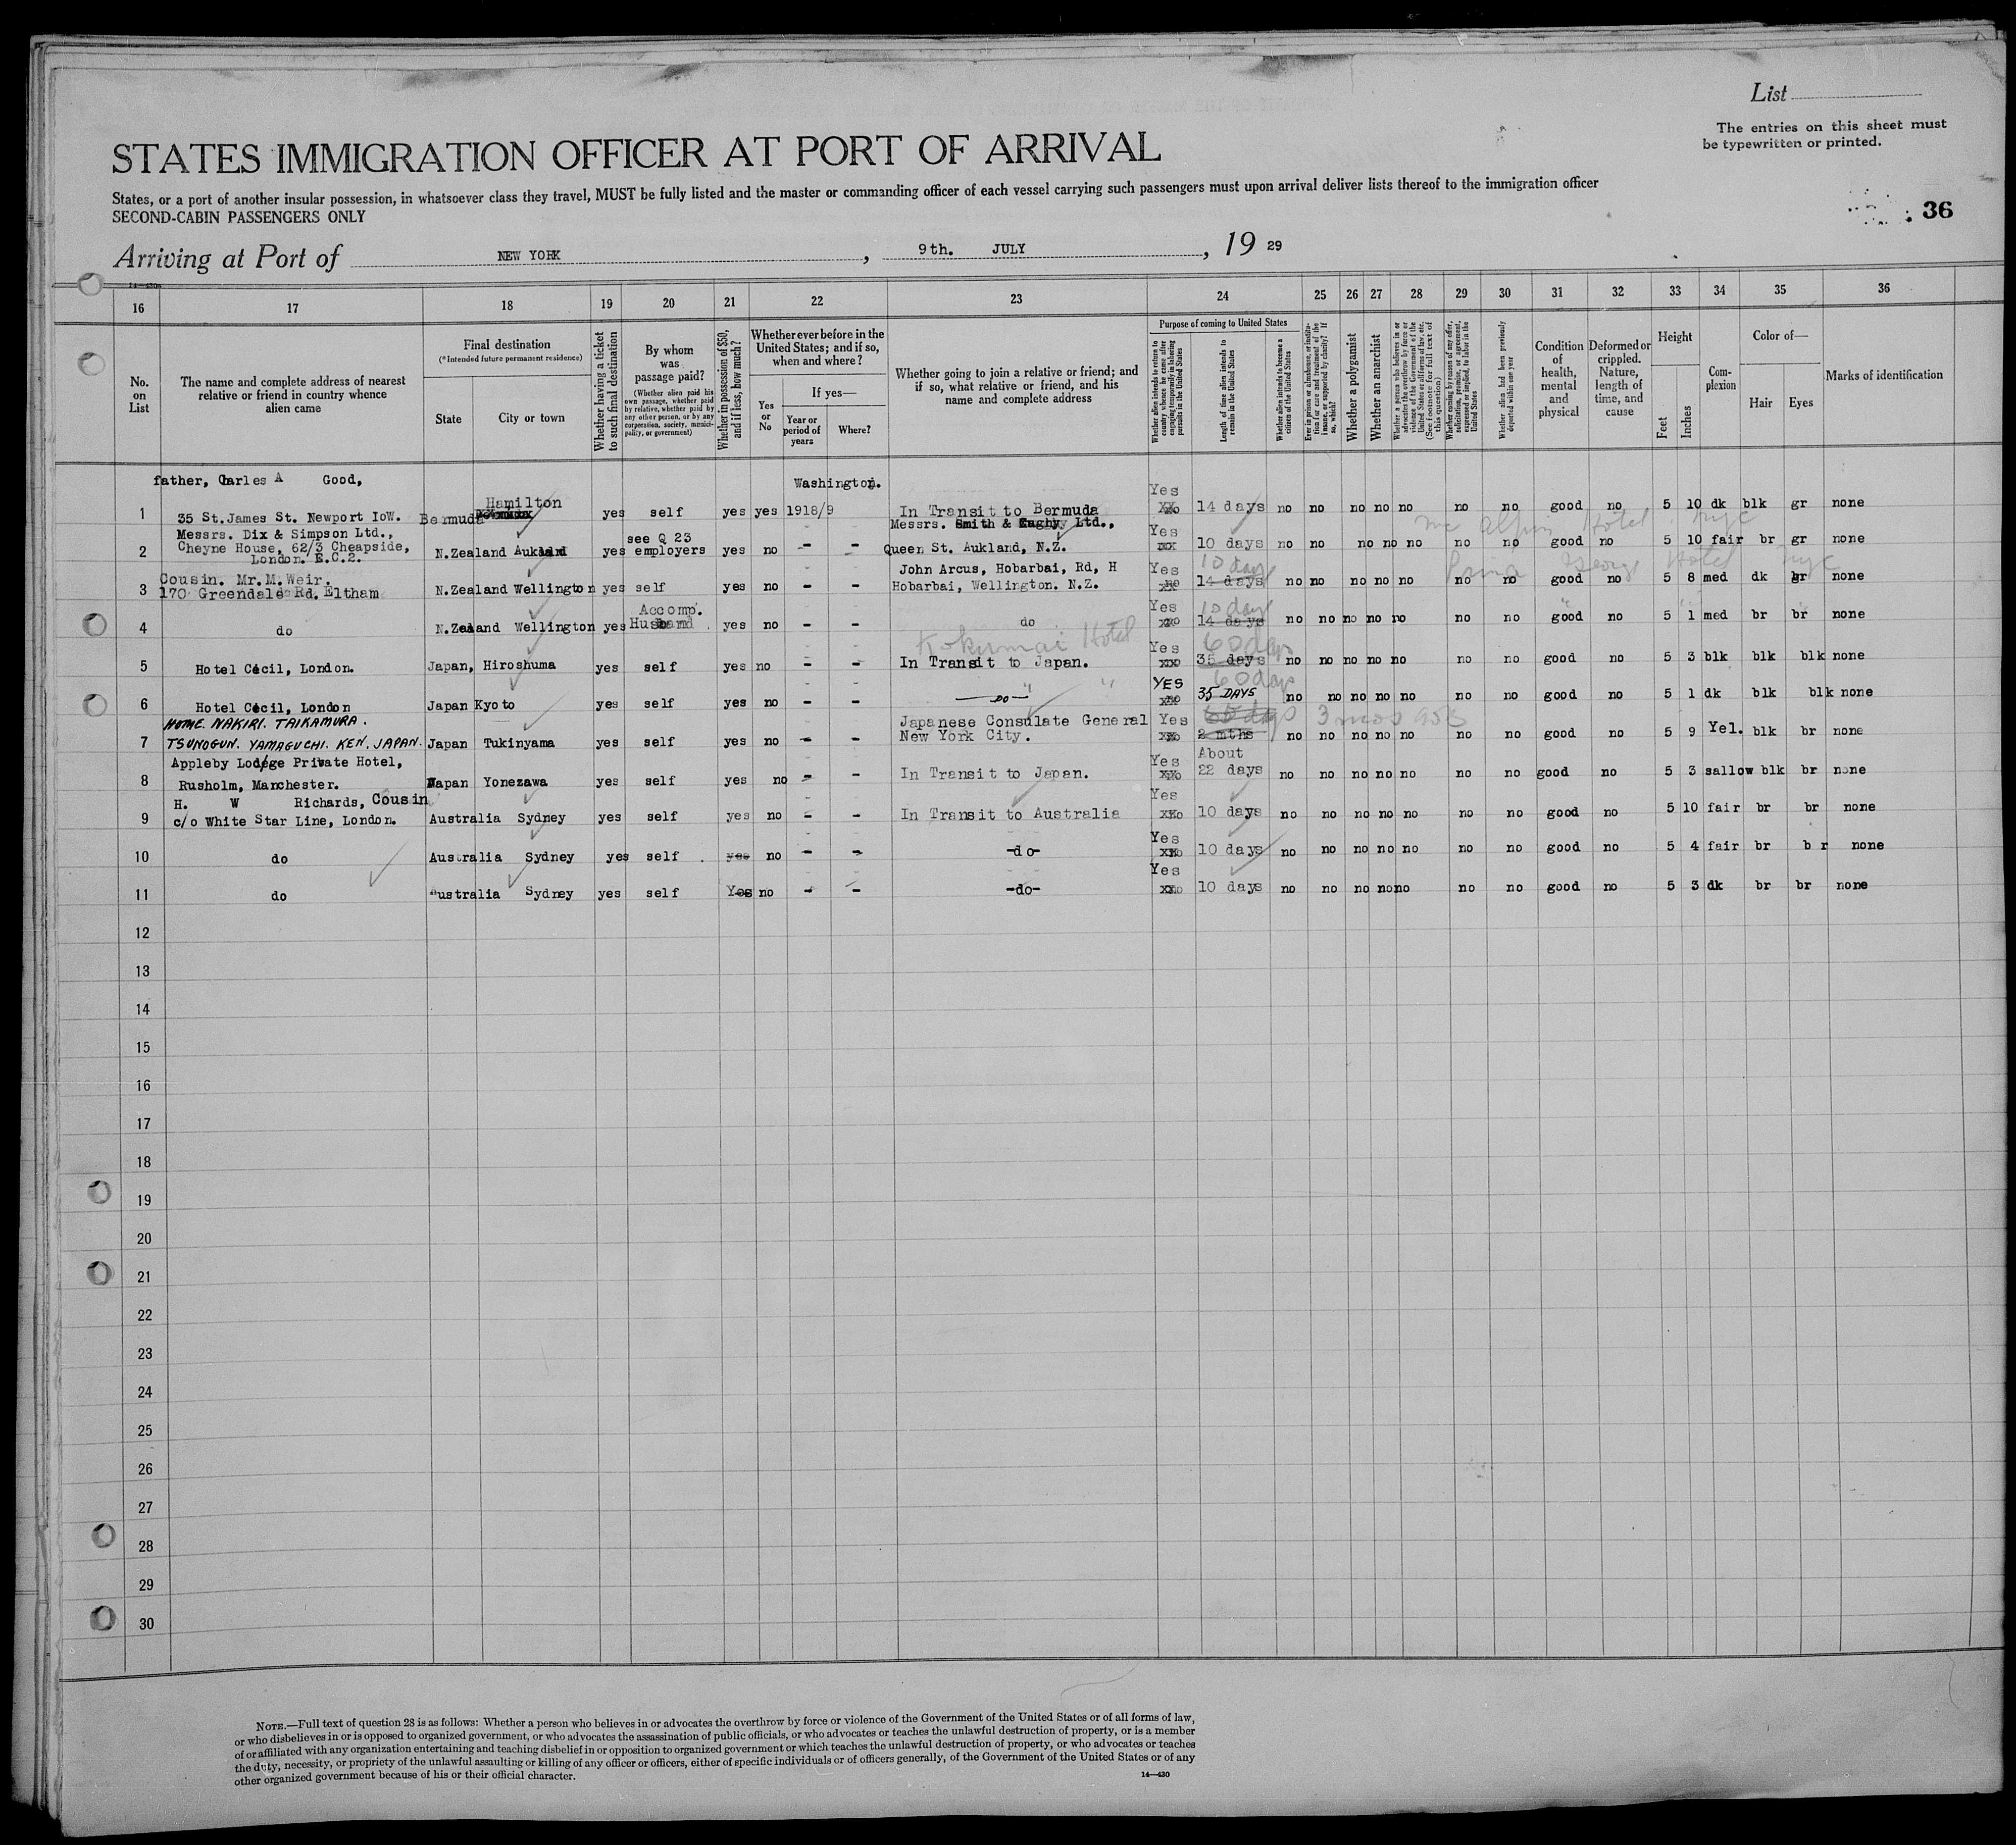 List
The entries on this sheet must
be typewritten or printed.
STATES IMMIGRATION OFFICER AT PORT OF ARRIVAL
States, or a port of another insular possession, in whatsoever class they travel, MUST be fully listed and the master or commanding officer of each vessel carrying such passengers must upon arrival deliver lists thereof to the immigration officer
SECOND-CABIN PASSENGERS ONLY
36
Arriving at Port of NEW YORK, 9th. JULY, 19 29
16 17 18 19 20 21 22 23 24 25 26 27 28 29 30 31 32 33 34 35 36
No. on List
The name and complete address of nearest relative or friend in country whence alien came
Final destination
(*Intended future permanent residence)
State
City or town
Whether having a ticket to such final destination
By whom was passage paid?
(Whether alien paid his own passage, whether paid by relative, whether paid by any other person, or by any corporation, society, municipality, or government)
Whether in possession of $50, and if less, how much?
Whether ever before in the United States; and if so, when and where?
Yes or No
If yes—
Year or period of years
Where?
Whether going to join a relative or friend; and if so, what relative or friend, and his name and complete address
Purpose of coming to United States
Whether alien intends to return to country whence he came after engaging temporarily in laboring pursuits in the United States
Length of time alien intends to remain in the United States
Whether alien intends to become a citizen of the United States
Ever in prison or almshouse, or institution for care and treatment of the insane, or supported by charity? If so, which?
Whether a polygamist
Whether an anarchist
Whether a person who believes in or advocates the overthrow by force or violence of the Government of the United States or all forms of law, etc. (See footnote for full text of this question)
Whether coming by reason of any offer, solicitation, promise, or agreement, expressed or implied, to labor in the United States
Whether alien had been previously deported within one year
Condition of health, mental and physical
Deformed or crippled. Nature, length of time, and cause
Height
Feet
Inches
Complexion
Color of—
Hair
Eyes
Marks of identification
father, Charles A Good, Washington. Yes
1 35 St.James St. Newport IoW. Bermuda Hamilton yes self yes yes 1918/9 In Transit to Bermuda 14 days no no no no no no no good no 5 10 dk blk gr none
Messrs. Dix & Simpson Ltd., see Q 23 Messrs. Smith & Ltd., Yes
2 Cheyne House, 62/3 Cheapside, London. E.C.2. N.Zealand Aukland yes employers yes no - - Queen St. Aukland, N.Z. 10 days no no no no no no no good no 5 10 fair br gr none
Cousin. Mr.M.Weir. John Arcus, Hobarbai, Rd, H Yes 10 days
3 170 Greendale Rd. Eltham N.Zealand Wellington yes self yes no - - Hobarbai, Wellington. N.Z. 14 days no no no no no no no good no 5 8 med dk br none
Accomp. Yes 10 days
4 do N.Zealand Wellington yes Husband yes no - - do 14 days no no no no no no no good no 5 1 med br br none
Hotel Yes 60 days
5 Hotel Cecil, London. Japan, Hiroshuma yes self yes no - - In Transit to Japan. 35 days no no no no no no no good no 5 3 blk blk blk none
YES 60 days
6 Hotel Cecil, London Japan Kyoto yes self yes no - - DO 35 DAYS no no no no no no no good no 5 1 dk blk blk none
HOME. NAKIRI. TAIKAMURA. Japanese Consulate General Yes 3 mos
7 TSUNOGUN. YAMAGUCHI. KEN. JAPAN. Japan Tukinyama yes self yes no - - New York City. 2 mths no no no no no no no good no 5 9 Yel. blk br none
Appleby Lodge Private Hotel, Yes About
8 Rusholm, Manchester. Japan Yonezawa yes self yes no - - In Transit to Japan. 22 days no no no no no no no good no 5 3 sallow blk br none
H. W Richards, Cousin Yes
9 c/o White Star Line, London. Australia Sydney yes self yes no - - In Transit to Australia 10 days no no no no no no no good no 5 10 fair br br none
Yes
10 do Australia Sydney yes self yes no - - -do- 10 days no no no no no no no good no 5 4 fair br br none
Yes
11 do Australia Sydney yes self Yes no - - -do- 10 days no no no no no no no good no 5 3 dk br br none
12
13
14
15
16
17
18
19
20
21
22
23
24
25
26
27
28
29
30
NOTE.—Full text of question 28 is as follows: Whether a person who believes in or advocates the overthrow by force or violence of the Government of the United States or of all forms of law,
or who disbelieves in or is opposed to organized government, or who advocates the assassination of public officials, or who advocates or teaches the unlawful destruction of property, or is a member
of or affiliated with any organization entertaining and teaching disbelief in or opposition to organized government or which teaches the unlawful destruction of property, or who advocates or teaches
the duty, necessity, or propriety of the unlawful assaulting or killing of any officer or officers, either of specific individuals or of officers generally, of the Government of the United States or of any
other organized government because of his or their official character.
14—430